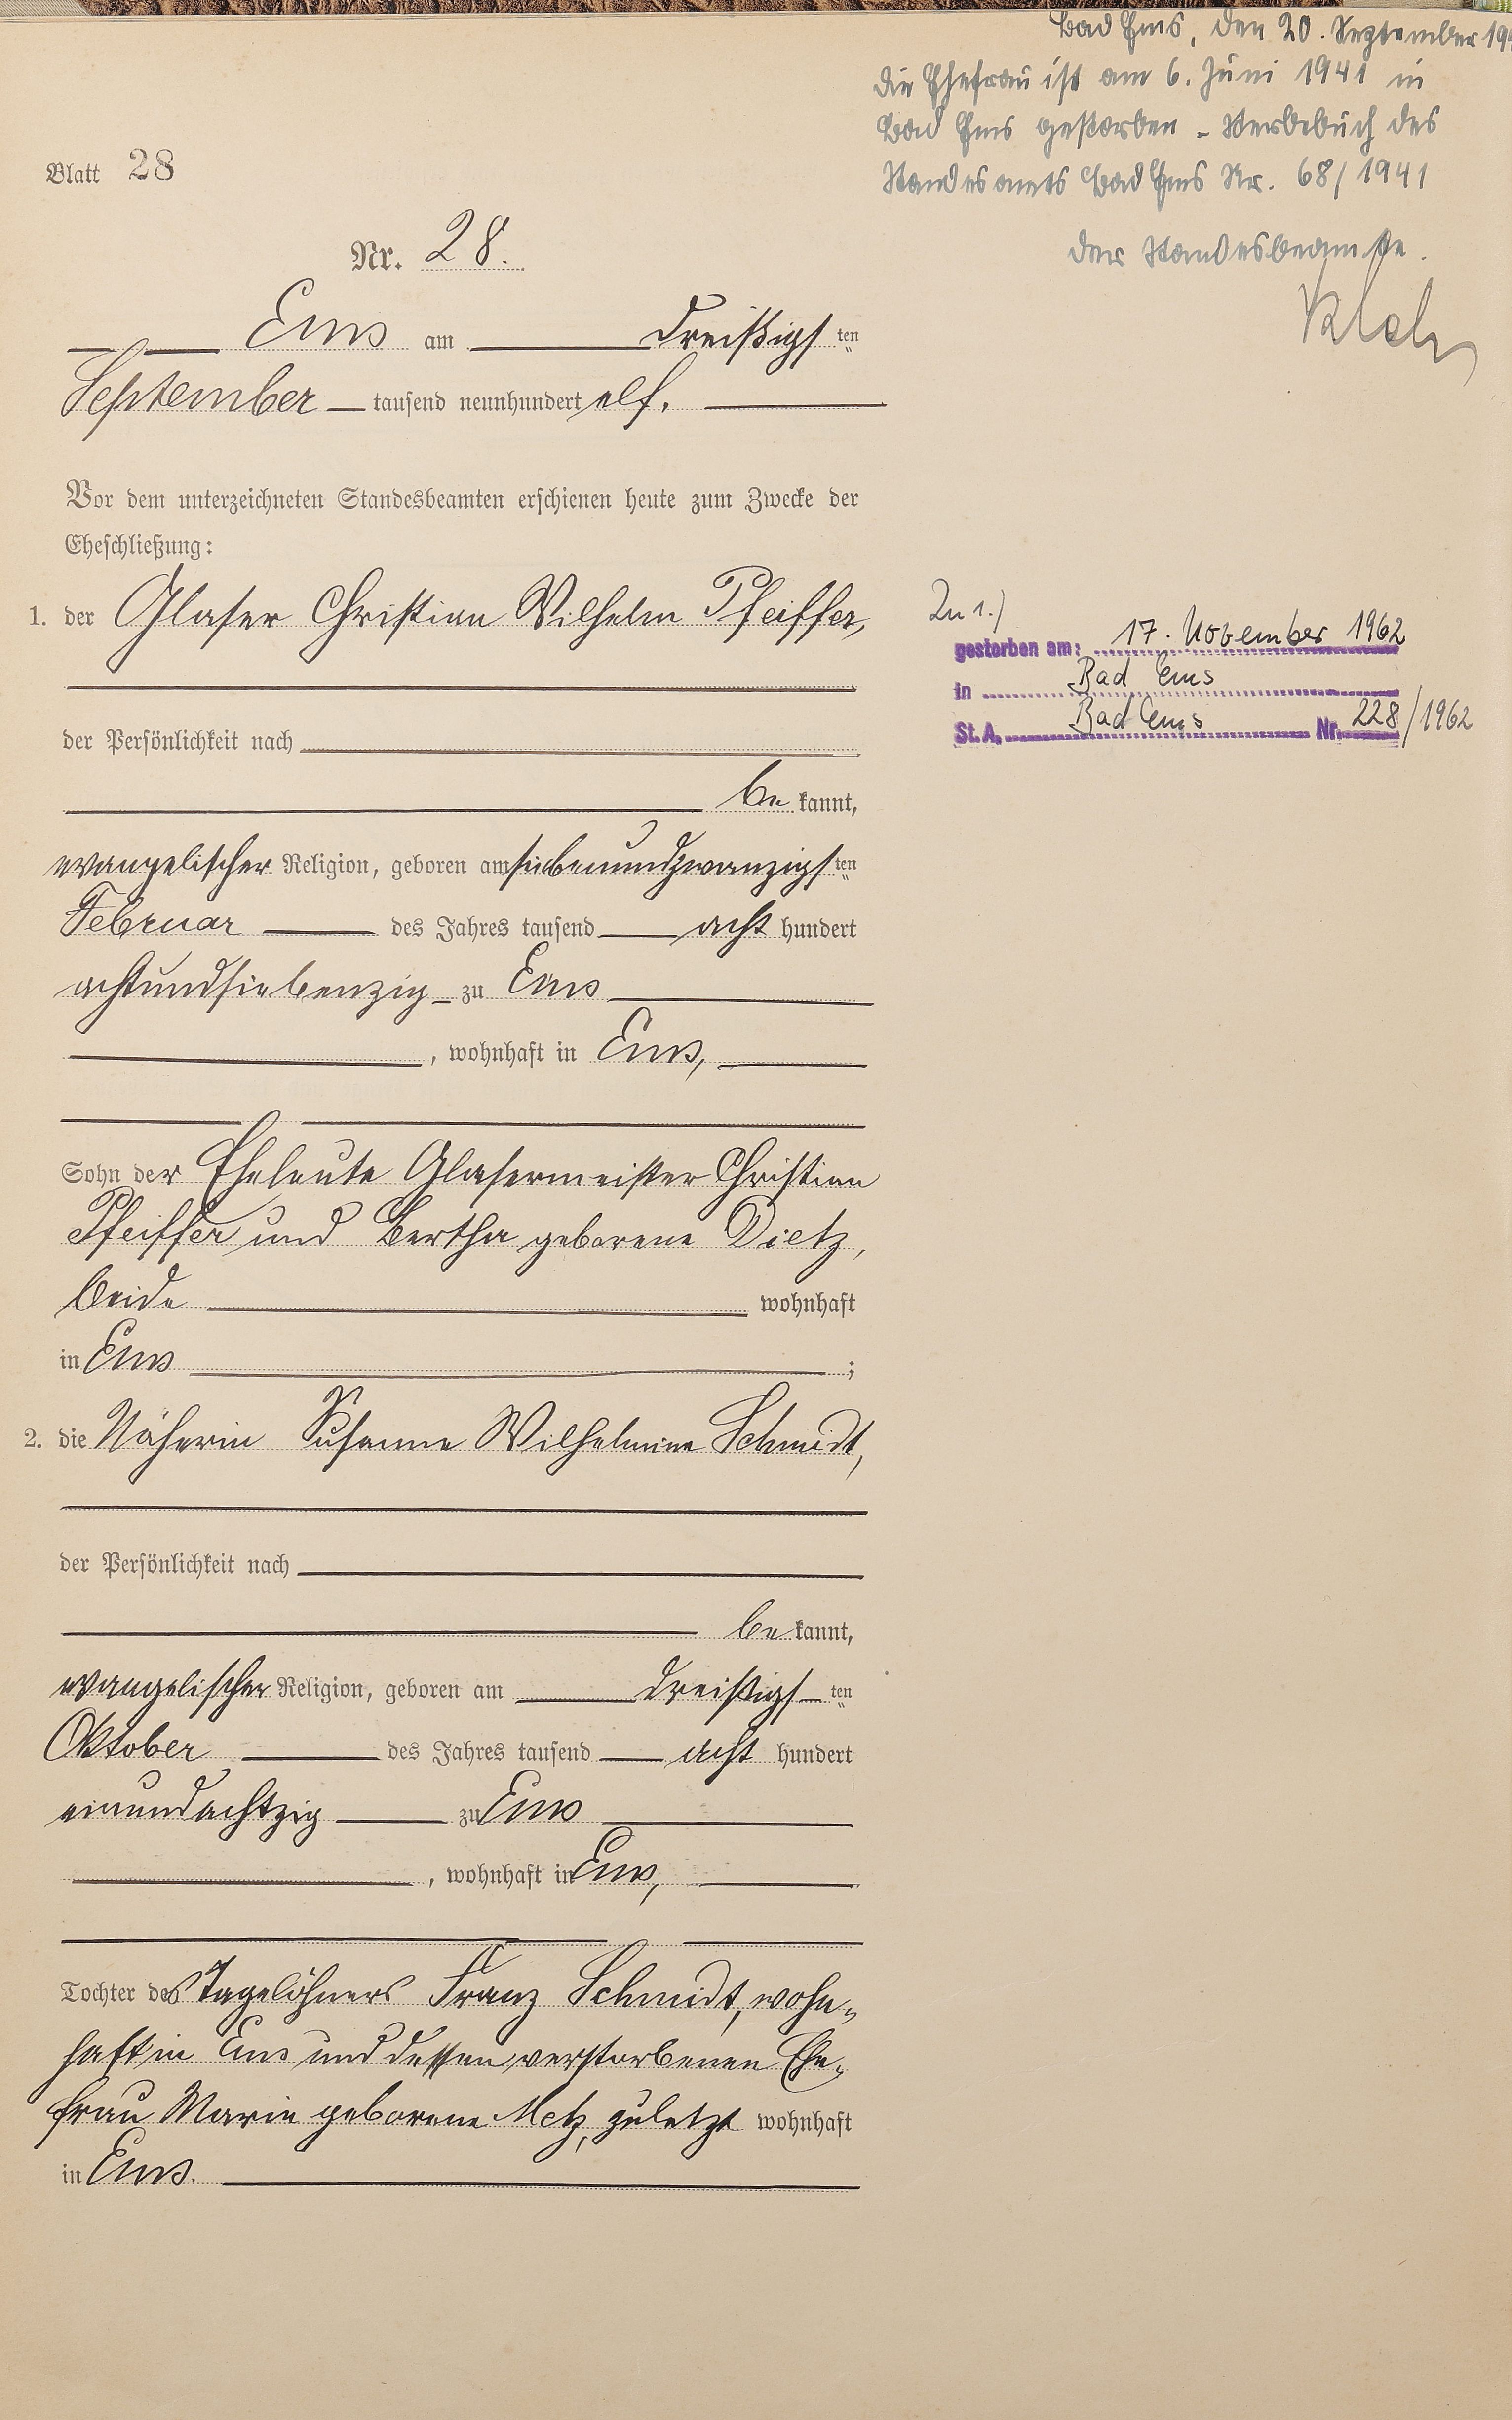 Bad Ems, den 20. September 194
Die Ehefrau ist am 6. Juni 1941 in
Bad Ems gestorben - Sterbebuch des
Standesamts Bad Ems Nr. 68/1941
Der Standesbeamte.
Blatt 28
Nr. 28.
Ems am Dreißigsten
September tausend neunhundert elf.
Vor dem unterzeichneten Standesbeamten erschienen heute zum Zwecke der
Eheschließung:
1. der Glaser Christian Wilhelm Pfeiffer,
der Persönlichkeit nach
be kannt,
evangelischer Religion, geboren am siebenundzwanzigsten
Februar des Jahres tausend acht hundert
achtundsiebenzig zu Ems
, wohnhaft in Ems,
Sohn der Eheleute Glasermeister Christian
Pfeiffer und Bertha geborene Dietz,
beide wohnhaft
in Ems ;
Zu 1.)
gestorben am: 17. November 1962
in Bad Ems
St. A. Bad Ems Nr. 228/1962
2. die Näherin Susanne Wilhelmine Schmidt,
der Persönlichkeit nach
be kannt,
evangelischer Religion, geboren am dreißigsten
Oktober des Jahres tausend acht hundert
einundachtzig zu Ems
, wohnhaft in Ems,
Tochter des Tagelöhners Franz Schmidt, wohn-
haft in Ems und dessen verstorbenen Ehe-
frau Marie geborene Metz, zuletzt wohnhaft
in Ems.